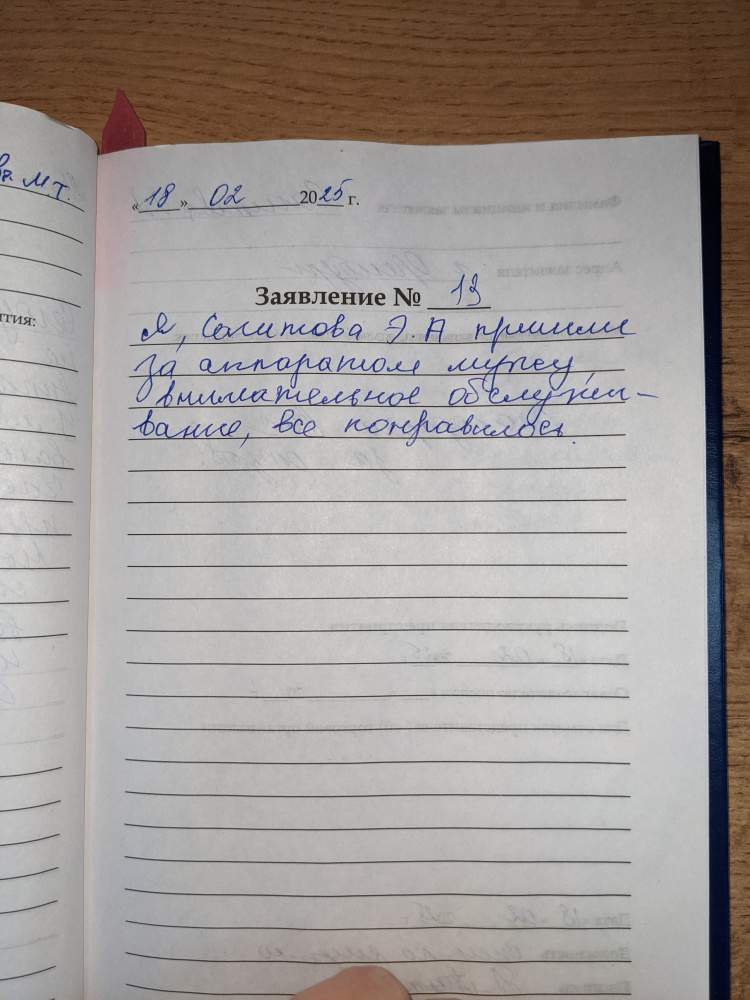 М Т.
тия:
«18» 02 2025 г.
Заявление № 13
Я, Салитова Э. А пришли
за аппаратом мужу,
внимательное обслужи-
вание, все понравилось.